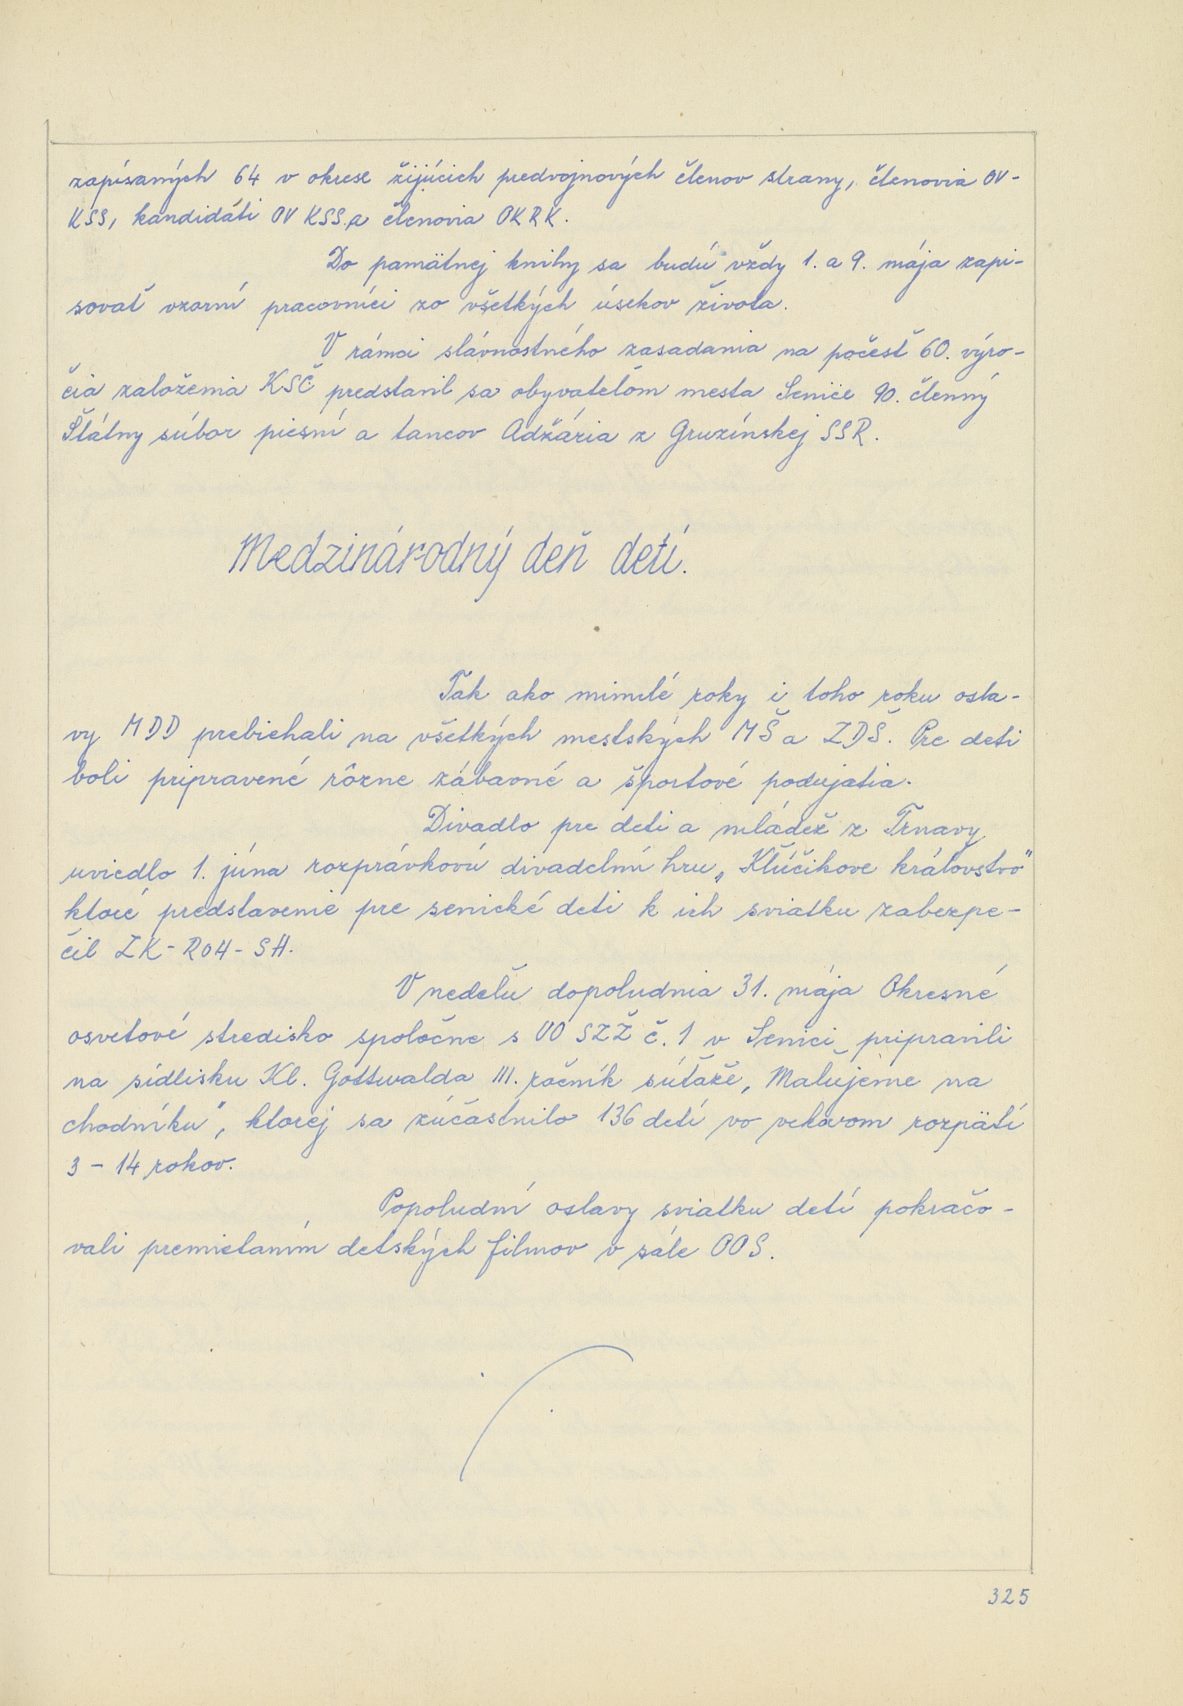 zapísaných 64 v okrese žijúcich predvojnových členov strany, členovia OV-
KSS, kandidáti OV KSS a členovia OKRK.
Do pamätnej knihy sa budú vždy 1. a 9. mája zapi-
sovať vzorní pracovníci zo všetkých úsekov života.
V rámci slávnostného zasadania na počesť 60. výro-
čia založenia KSČ predstavil sa obyvateľom mesta Senice 90. členný
Štátny súbor piesní a tancov Adžária z Gruzínskej SSR.
Medzinárodný deň detí.
Tak ako minulé roky i toho roku osla-
vy MDD prebiehali na všetkých mestských MŠ a ZDŠ. Pre deti
boli pripravené rôzne zábavné a športové podujatia.
Divadlo pre deti a mládež z Trnavy
uviedlo 1. júna rozprávkovú divadelnú hru „Kľúčikove kráľovstvo"
ktoré predstavenie pre senické deti k ich sviatku zabezpe-
čil ZK-ROH-SH.
V nedeľu dopoludnia 31. mája Okresné
osvetové stredisko spoločne s UO SZŽ č. 1 v Senici pripravili
na sídlisku Kl. Gottwalda III. ročník súťaže „Maľujeme na
chodníku", ktorej sa zúčastnilo 136 detí vo vekovom rozpätí
3 - 14 rokov.
Popoludní oslavy sviatku detí pokračo-
vali premietaním detských filmov v sále OOS.
325